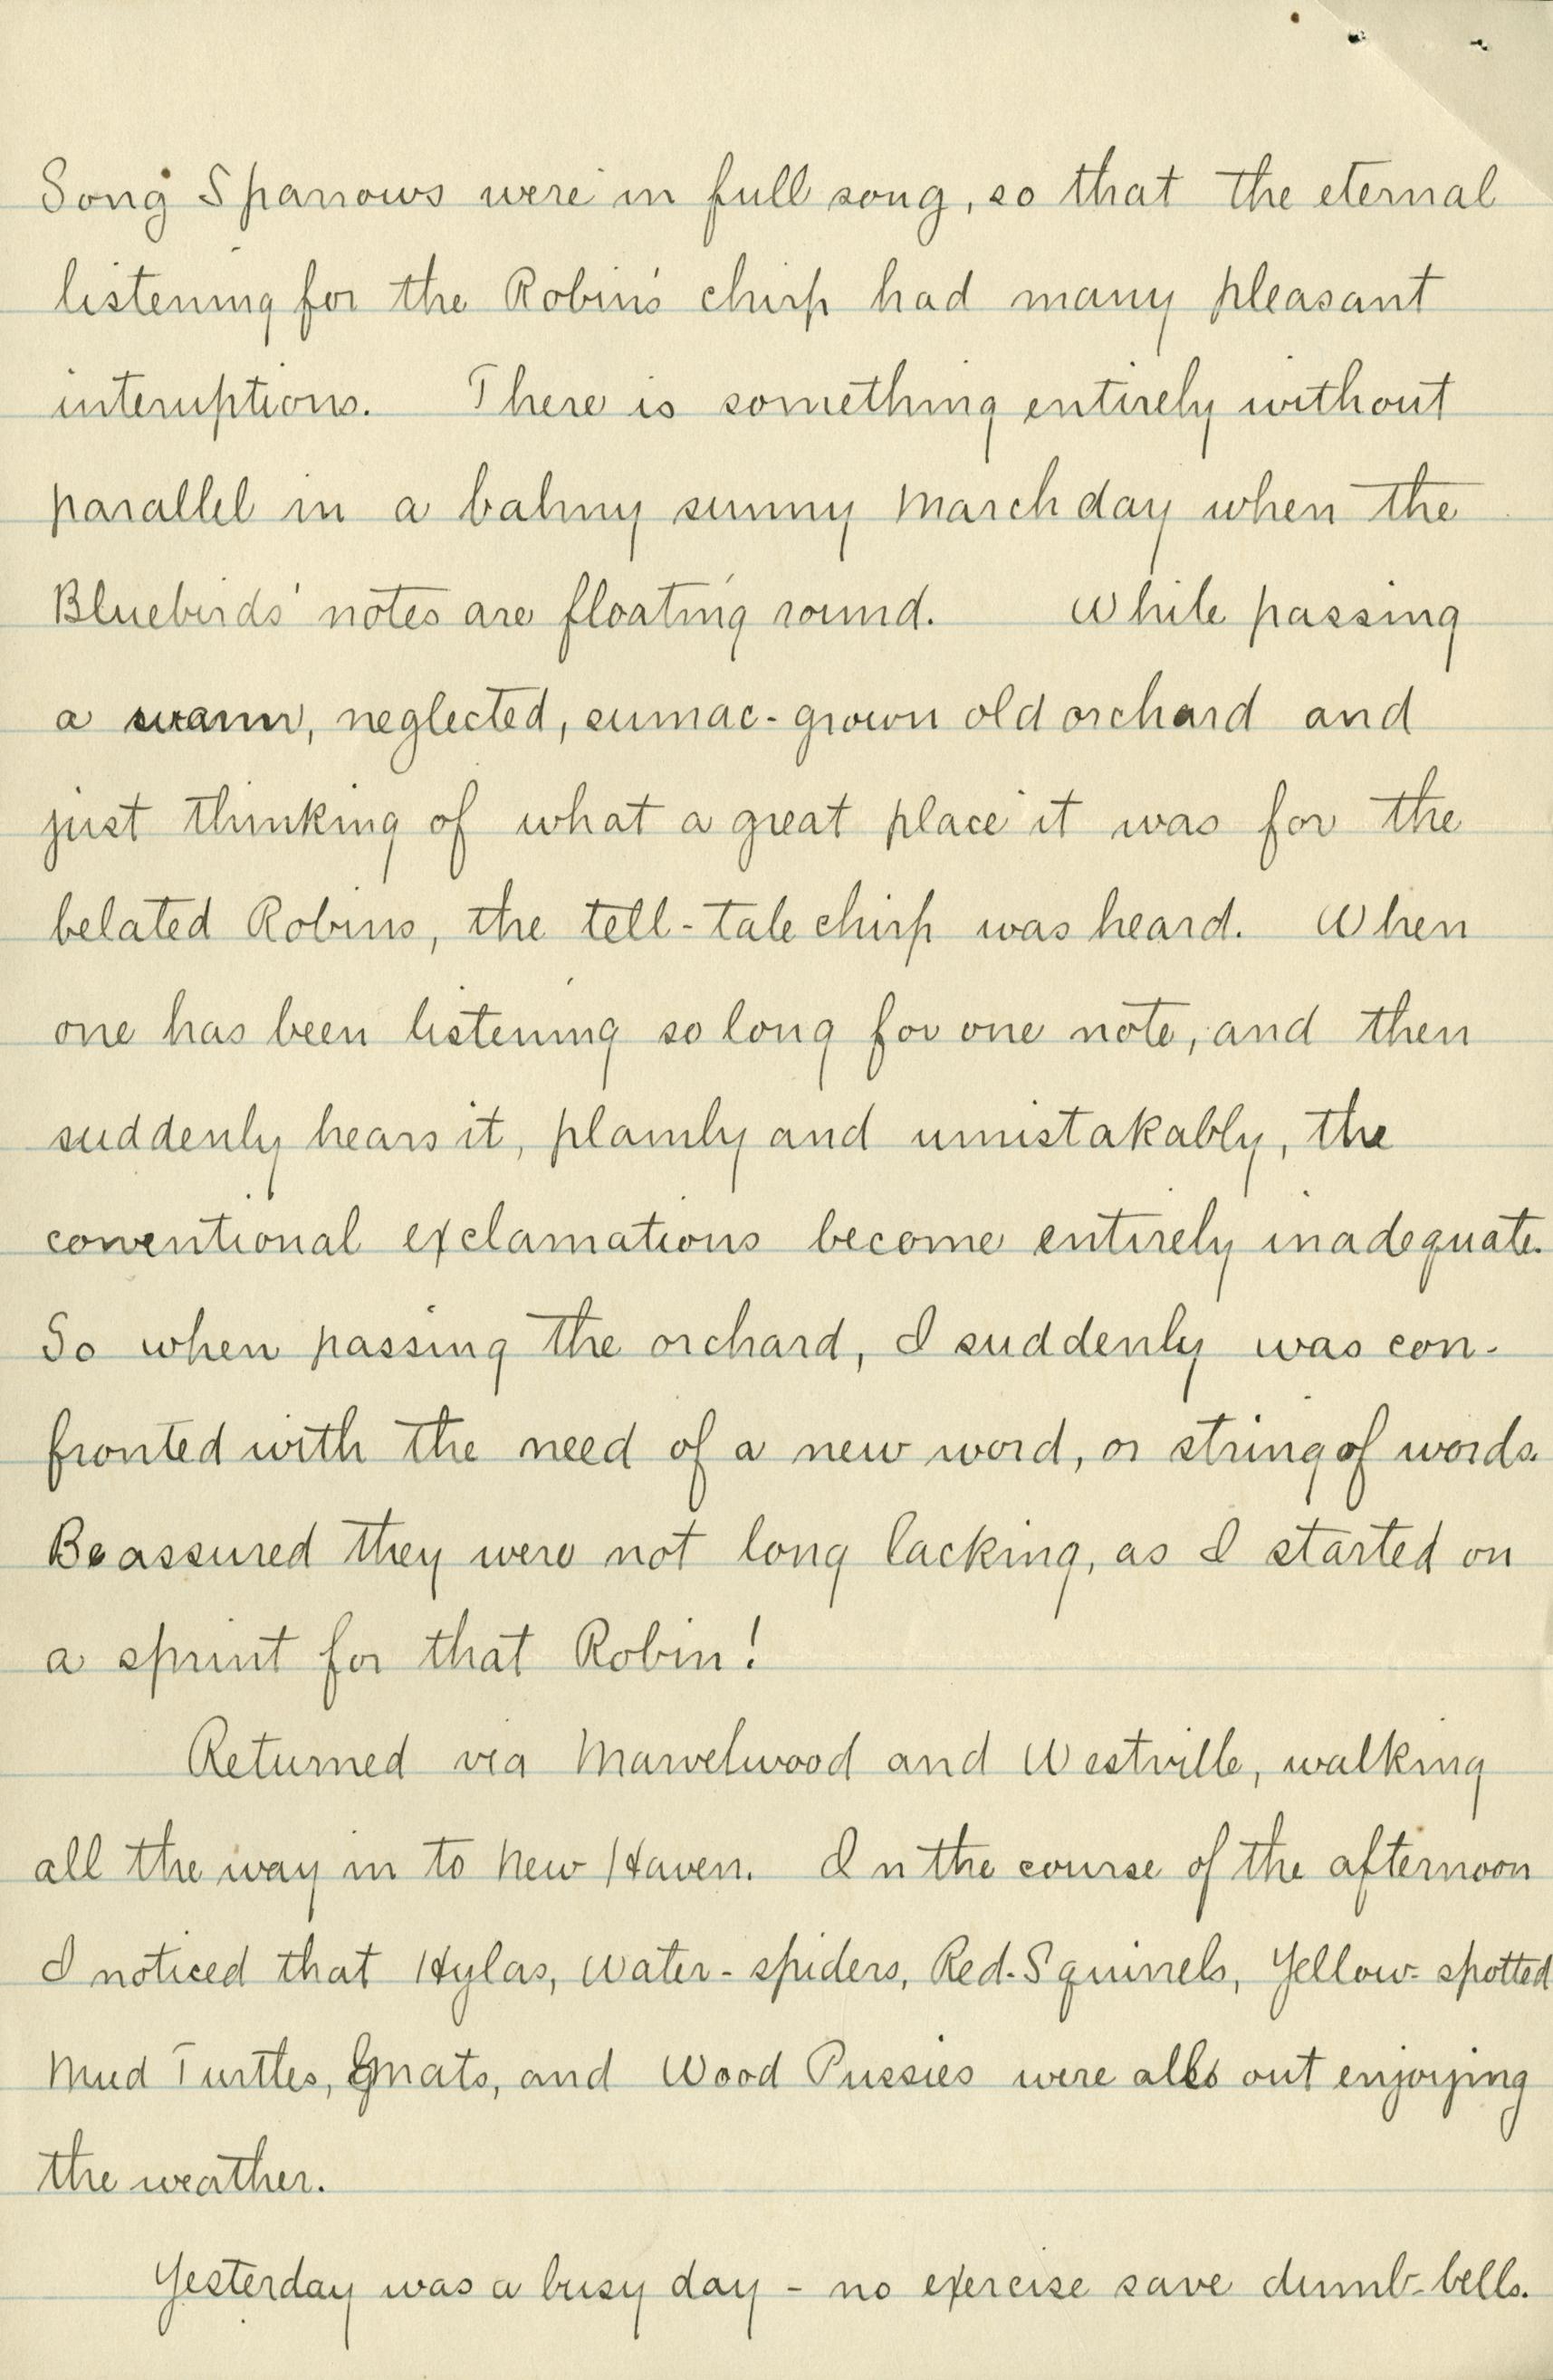 Song Sparrows were in full song, so that the eternal
listening for the Robin's chirp had many pleasant
interuptions. There is something entirely without
parallel in a balmy sunny March day when the
Bluebirds' notes are floating round. While passing
a warm, neglected, sumac-grown old orchard and
just thinking of what a great place it was for the
belated Robins, the tell-tale chirp was heard. When
one has been listening so long for one note, and then
suddenly hears it, plainly and unmistakably, the
conventional exclamations become entirely inadequate.
So when passing the orchard, I suddenly was con-
fronted with the need of a new word, or string of words.
Be assured they were not long lacking, as I started on
a sprint for that Robin!
Returned via Marvelwood and Westville, walking
all the way in to New Haven. In the course of the afternoon
I noticed that Hylas, Water-spiders, Red-Squirrels, Yellow-spotted
Mud Turtles, Gnats, and Wood Pussies were all out enjoying
the weather.
Yesterday was a busy day - no exercise save dumb-bells.